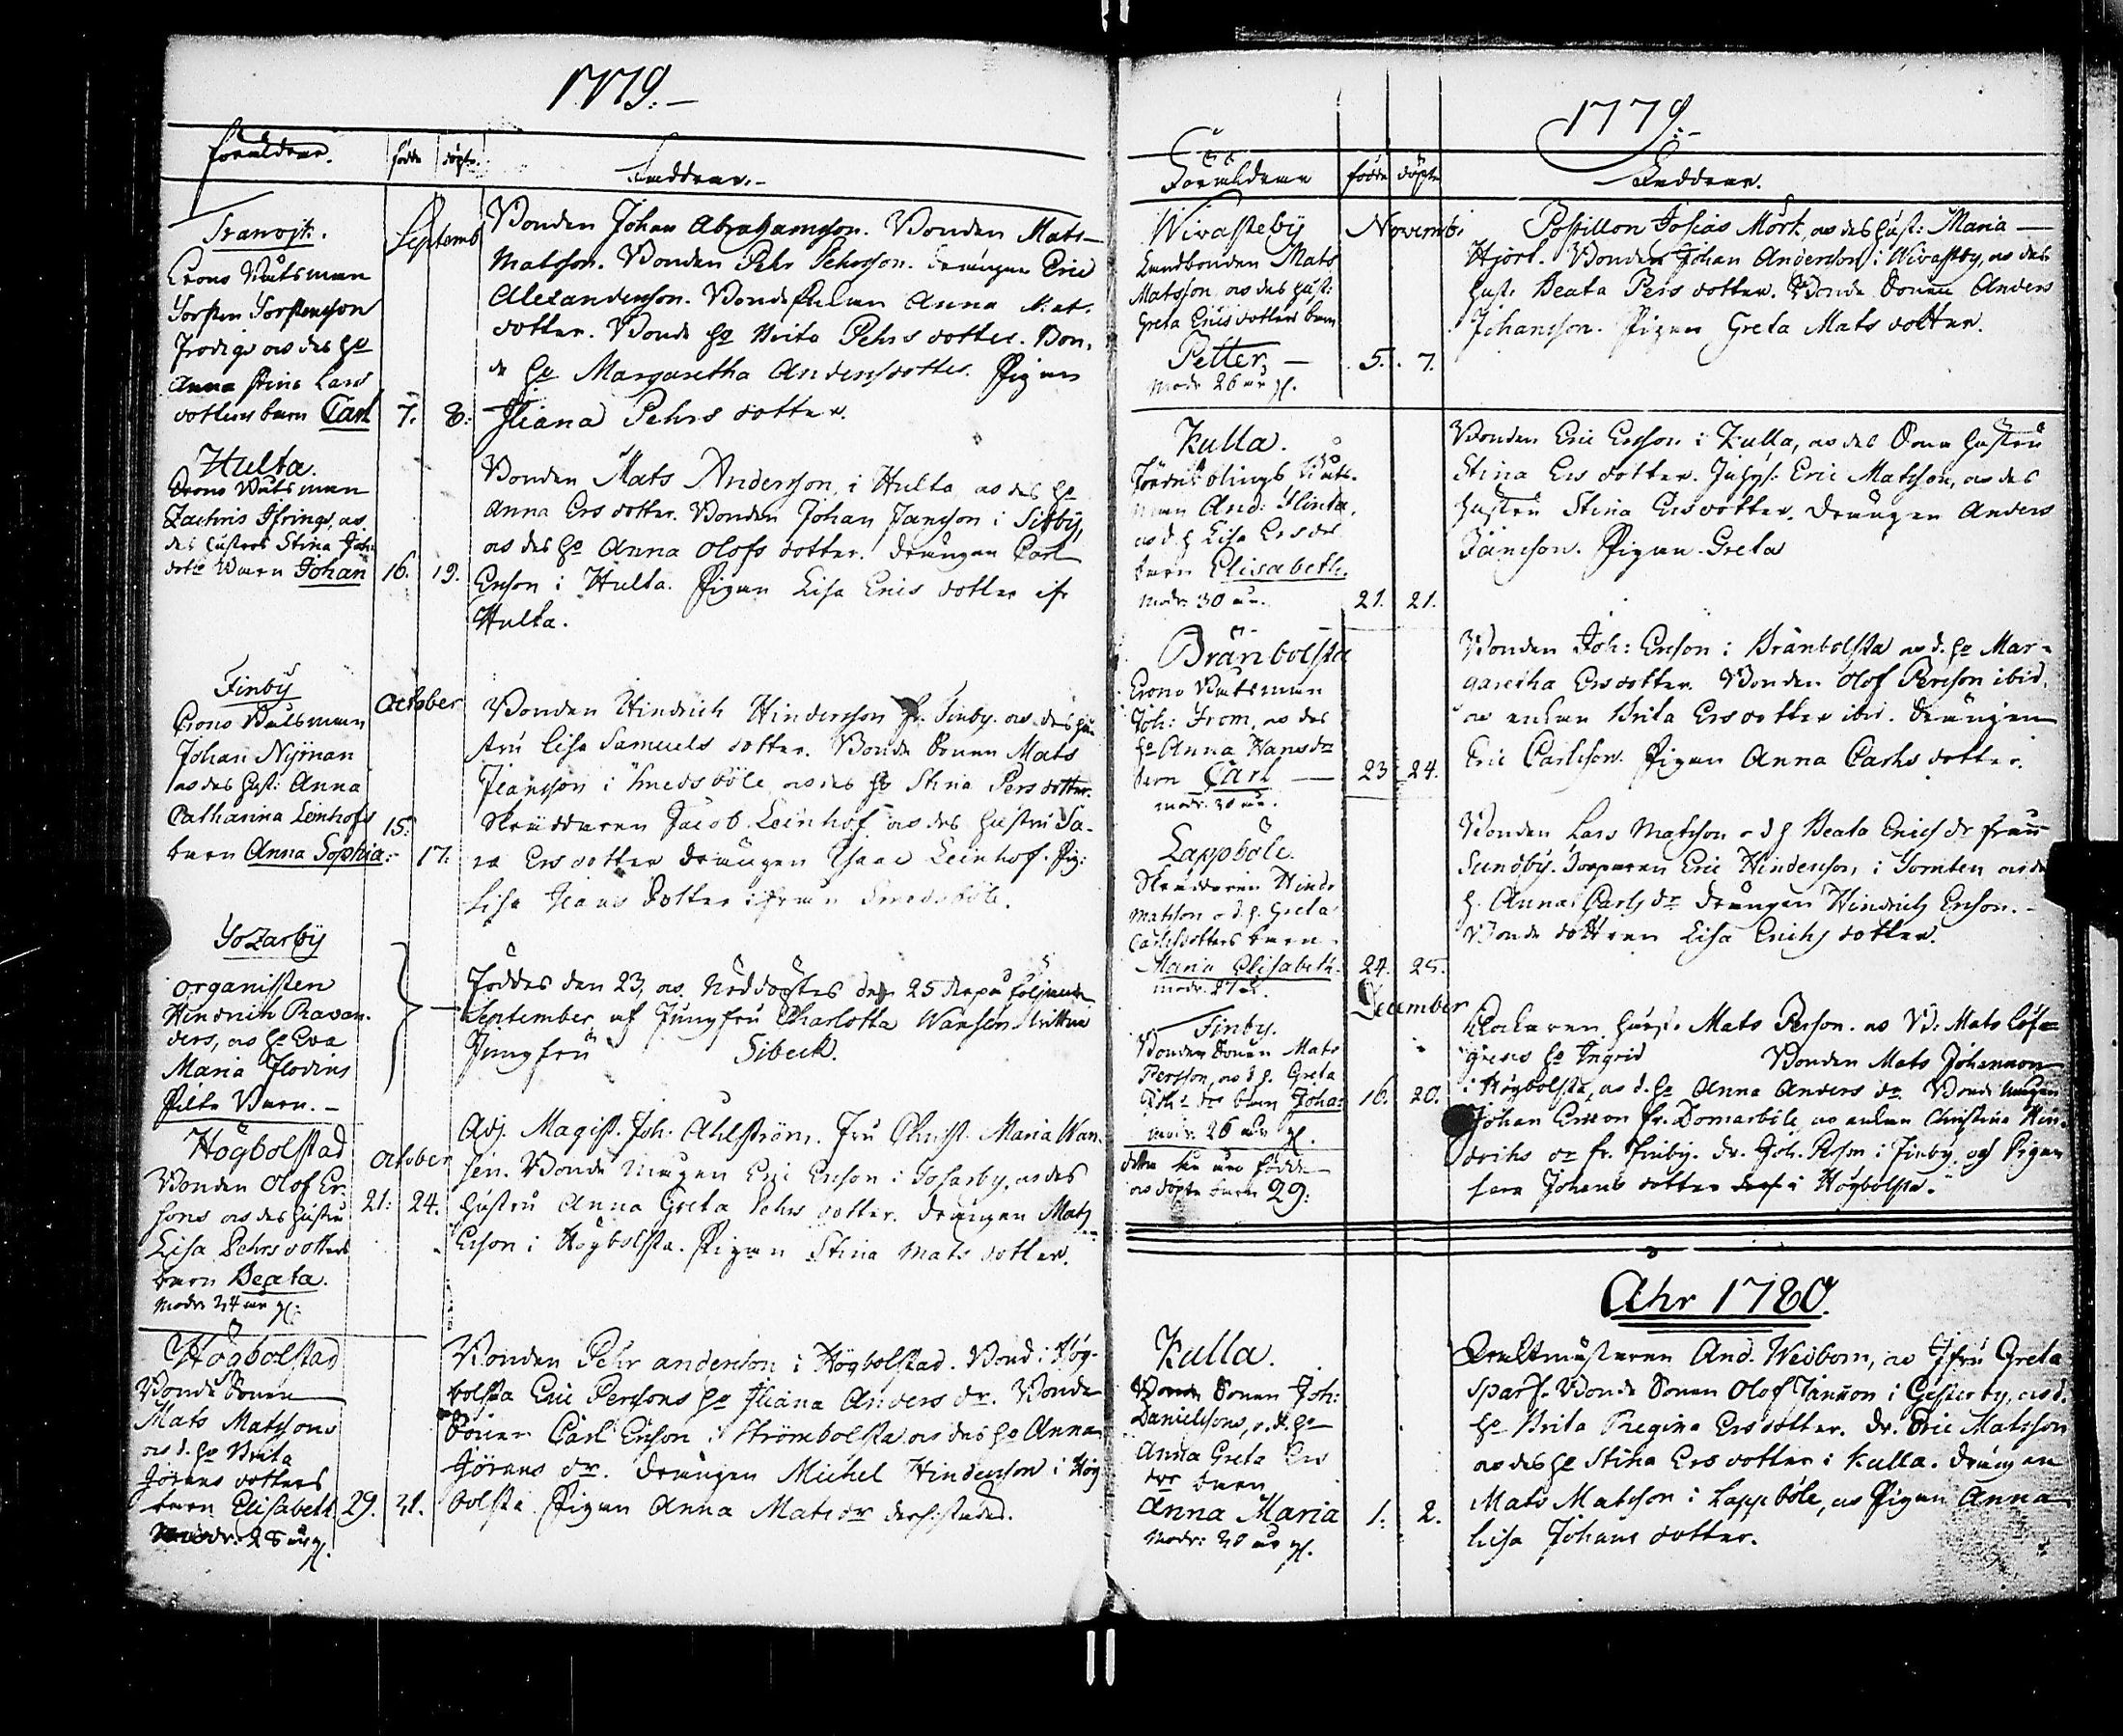 1779.-
Föräldrar. födde döpte. Faddrar.-
Tranvik. Septemb
Crono Båtsman
Torsten Torstenson
Frodigs oc des ho
Anna Stina Lars
dotters barn Carl 7. 8:
Bonden Johan Abrahamsson. Bonden Mats
Matsson. Bonden Pehr Pehrsson. Drängen Eric
Alexandersson. Bonde Anna Mats
dotter. Bonde ho Brita Pehrs dotter. Bon-
de ho Margaretha Andersdotter. Pigan
Iliana Pehrs dotter.
Hulta.
Crono Båtsman
Zachris Ifrings, oc
des hustrus Stina Joh:
dott Barn Johan 16. 19.
Bonden Mats Andersson, i Hulta oc des ho
Anna Ers dotter. Bonden Johan Jansson i Sitby,
oc des ho Anna Olofs dotter. Drängen Carl
Erson i Hulta. Pigan Lisa Erics dotter ifr
Hulta.
Finby October
Crono Båtsman
Johan Nyman
oc des hust: Anna
Catharina Leinhofs 15:
barn Anna Sophia: 17:
Bonden Hindrich Hindersson fr. Finby. oc des hu
stru Lisa Samuels dotter. Bonde Sonen Mats
Jeansson i Smedsböle oc des ho Stina Pers dotter.
Skräddaren Jacob Leinhof oc des hustru Sa-
ra Ersdotter drängen Isaac Leinhof. Pig:
Lisa Jeans dotter ifrån Smedsböle.
Tozarby
Organisten
Hindrich Ravan-
ders, oc ho Eva
Maria Flodins
Pilte Barn.-
Föddes den 23, oc Nöddöptes den 25 der på följande
September af Jungfru Charlotta Wansen Vittne
Jungfru Sibeck.
Högbolstad October
Bonden Olof Er-
sons oc des hustru 21: 24.
Lisa Pehrs dotters
barn Beata.
Modr: 24 år gl:
Adj. Magist. Joh: Ahlström. Fru Christ. Maria Wan-
sen. Bonde Mågen Eric Erson i Tosarby, oc des
hustru Anna Greta Pehrs dotter. Drängen Mats
Erson i Högbolsta. Pigan Stina Mats dotter.
Högbolstad
Bonde Sonen
Mats Matssons
oc d. ho Brita
Jörans dotters
barn Elisabeth 29. 31.
Modr: 28 år gl.
Bonden Pehr Anderson i Högbolstad. Bond: i Hög-
bolsta Eric Persons ho Iliana Anders dr. Bonde
Sonen Carl Erson i Strömbolsta oc des ho Anna
Jörans dr. Drängen Michel Hinderson i Hög
bolsta. Pigan Anna Mats dr dersstädes.
1779.-
Föräldrar födde döpte Faddrar.
Wivasteby Novemb:
Landbonden Mats
Matsson oc des hust:
Greta Erics dotters barn
Petter,- 5. 7.
Modr 26 år gl.
Postillon Josias Mörk, oc des hust: Maria
Hjort. Bonden Johan Anderson i Wivastby, oc des
hust: Beata Pers dotter. Bonde Sonen Anders
Johansson. Pigan Greta Mats dotter.
Kulla.
Båts-
man And: Flinta,
oc d. h Lisa Ers drs
barn Elisabeth.
Modr: 30 år. 21. 21.
Bonden Eric Ersson i Kulla, oc des Sona hustru
Stina Ers dotter. Inhys: Eric Matsson, oc des
hustru Stina Ersdotter. Drängen Anders
Jansson. Pigan Greta
Bränbolsta
Crono Båtsman
Joh: From, oc des
ho Anna Hans drs
barn Carl 23 24.
modr. 30 år.
Bonden Joh: Erson i Bränbolsta oc d. ho Mar-
garetha Ersdotter. Bonden Olof Person ibid.
oc enkan Brita Ersdotter ibid. Drängen
Eric Carlsson. Pigan Anna Carls dotter.
Lappböle.
Skräddaren Hindr
Matsson o d. h. Greta
Carlsdotters barn
Maria Elisabeth. 24. 25.
modr. 27 å.
Bonden Lars Matsson o d h Beata Erics dr från
Sundby. Torparen Eric Hinderson, i Tomten oc des
h. Anna Carls dr Drängen Hindrich Erson.-
Bonde dottren Lisa Erichs dotter.
December
Finby.
Bonden Sonen Mats
Persson, oc d h. Greta
Joh: drs barn Johan 16. 20.
modr. 26 år gl.
detta år äro födde
oc döpte barn 29:
Klockaren Mats Person. oc Mats Löf-
grens ho Ingrid Bonden Mats Johansson
i Högbolsta, oc d. ho Anna Anders dr. Bonde Mågen
Johan Ersson fr. Domarböle oc enkan Christina Hin-
drichs dr fr. Finby. Dr. Joh. Persn i Finby och Pigan
Sara Johans dotter i Högbolsta.
Åhr 1780.
Kulla.
Bonde Sonen Joh:
Danielssons, o. d. ho
Anna Greta Ers
drs barn
Anna Maria 1. 2.
Modr: 30 år gl.
And. Wedbom, oc Jfru Greta
Sparf. Bonde Sonen Olof Jansson i Gesterby, oc d.
ho Brita Regina Ersdotter. Dr. Eric Matsson
oc des ho Stina Ers dotter i Kulla. Drängen
Mats Matsson i Lappböle, oc Pigan Anna
Lisa Johans dotter.